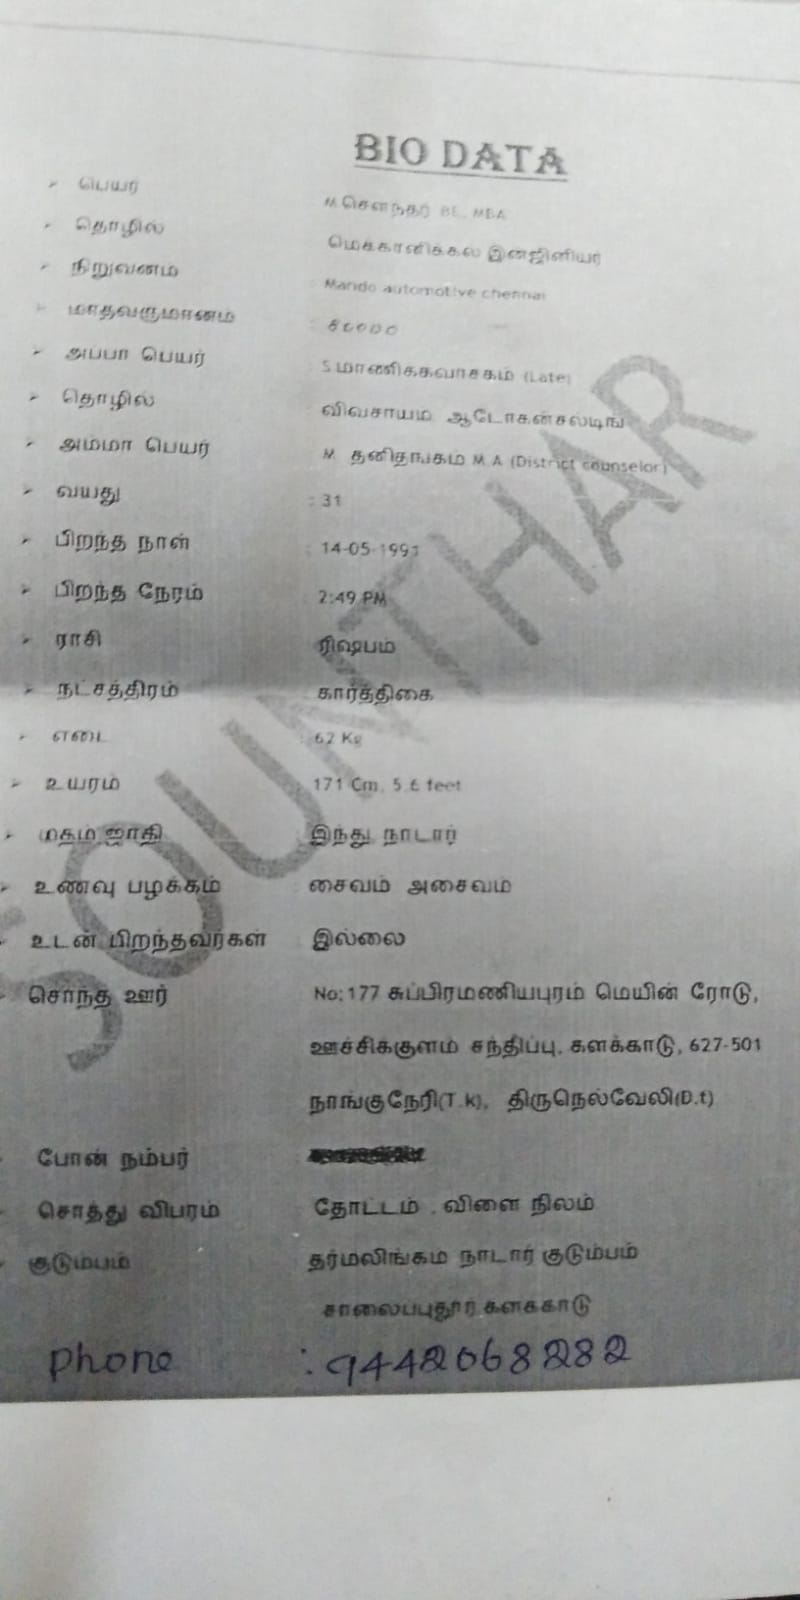 BIO DATA
பெயர் M.சௌந்தர் BE., MBA
தொழில் மெக்கானிக்கல் இன்ஜினியர்
நிறுவனம் Mando automotive chennai
மாதவருமானம் :
அப்பா பெயர் : S.மாணிக்கவாசகம் (Late)
தொழில் விவசாயம் ஆடோகன்சல்டிங்
அம்மா பெயர் M. தனிதங்கம் M.A (District counselor)
வயது : 31
பிறந்த நாள் : 14-05-1991
பிறந்த நேரம் : 2:49 PM
ராசி ரிஷபம்
நட்சத்திரம் கார்த்திகை
எடை : 62 Kg
உயரம் : 171 Cm, 5.6 feet
மதம் ஜாதி இந்து நாடார்
உணவு பழக்கம் சைவம் அசைவம்
உடன் பிறந்தவர்கள் இல்லை
சொந்த ஊர் No:177 சுப்பிரமணியபுரம் மெயின் ரோடு,
ஊச்சிக்குளம் சந்திப்பு, களக்காடு, 627-501
நாங்குநேரி(T.k), திருநெல்வேலி(D.t)
போன் நம்பர்
சொத்து விபரம் தோட்டம் , விளை நிலம்
குடும்பம் தர்மலிங்கம் நாடார் குடும்பம்
சாலைப்புதூர் களக்காடு
Phone : 9442068282
SOUNTHAR